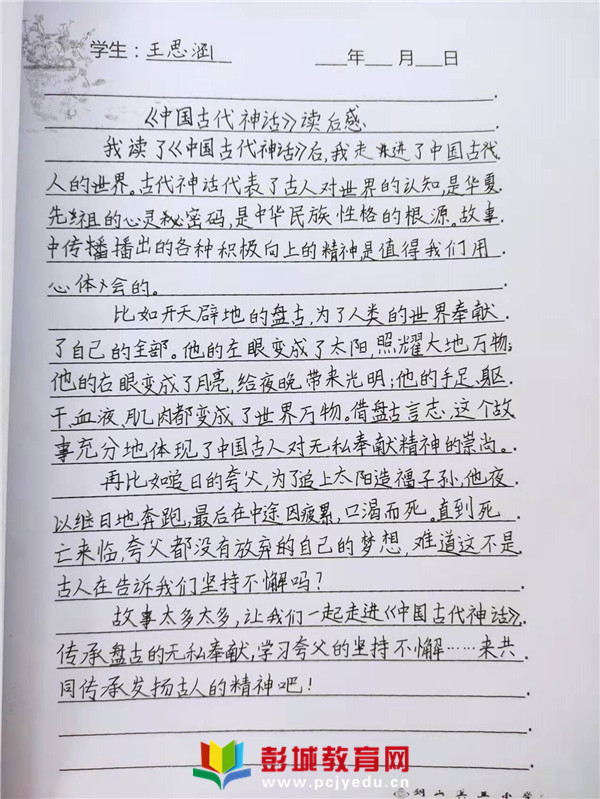 学生：王思涵
___年___月___日
《中国古代神话》读后感
我读了《中国古代神话》后，我走进了中国古代
人的世界。古代神话代表了古人对世界的认知，是华夏
先祖的心灵秘密码，是中华民族性格的根源。故事
中传播播出的各种积极向上的精神是值得我们用
心体会的。
比如开天辟地的盘古，为了人类的世界奉献
了自己的全部。他的左眼变成了太阳，照耀大地万物；
他的右眼变成了月亮，给夜晚带来光明；他的手足、躯
干、血液、肌肉都变成了世界万物。借盘古言志，这个故
事充分地体现了中国古人对无私奉献精神的崇尚。
再比如追日的夸父，为了追上太阳造福子孙，他夜
以继日地奔跑，最后在中途因疲累，口渴而死。直到死
亡来临，夸父都没有放弃的自己的梦想，难道这不是
古人在告诉我们坚持不懈吗？
故事太多太多，让我们一起走进《中国古代神话》，
传承盘古的无私奉献，学习夸父的坚持不懈……来共
同传承发扬古人的精神吧！
彭城教育网
www.pcjyedu.cn
小学